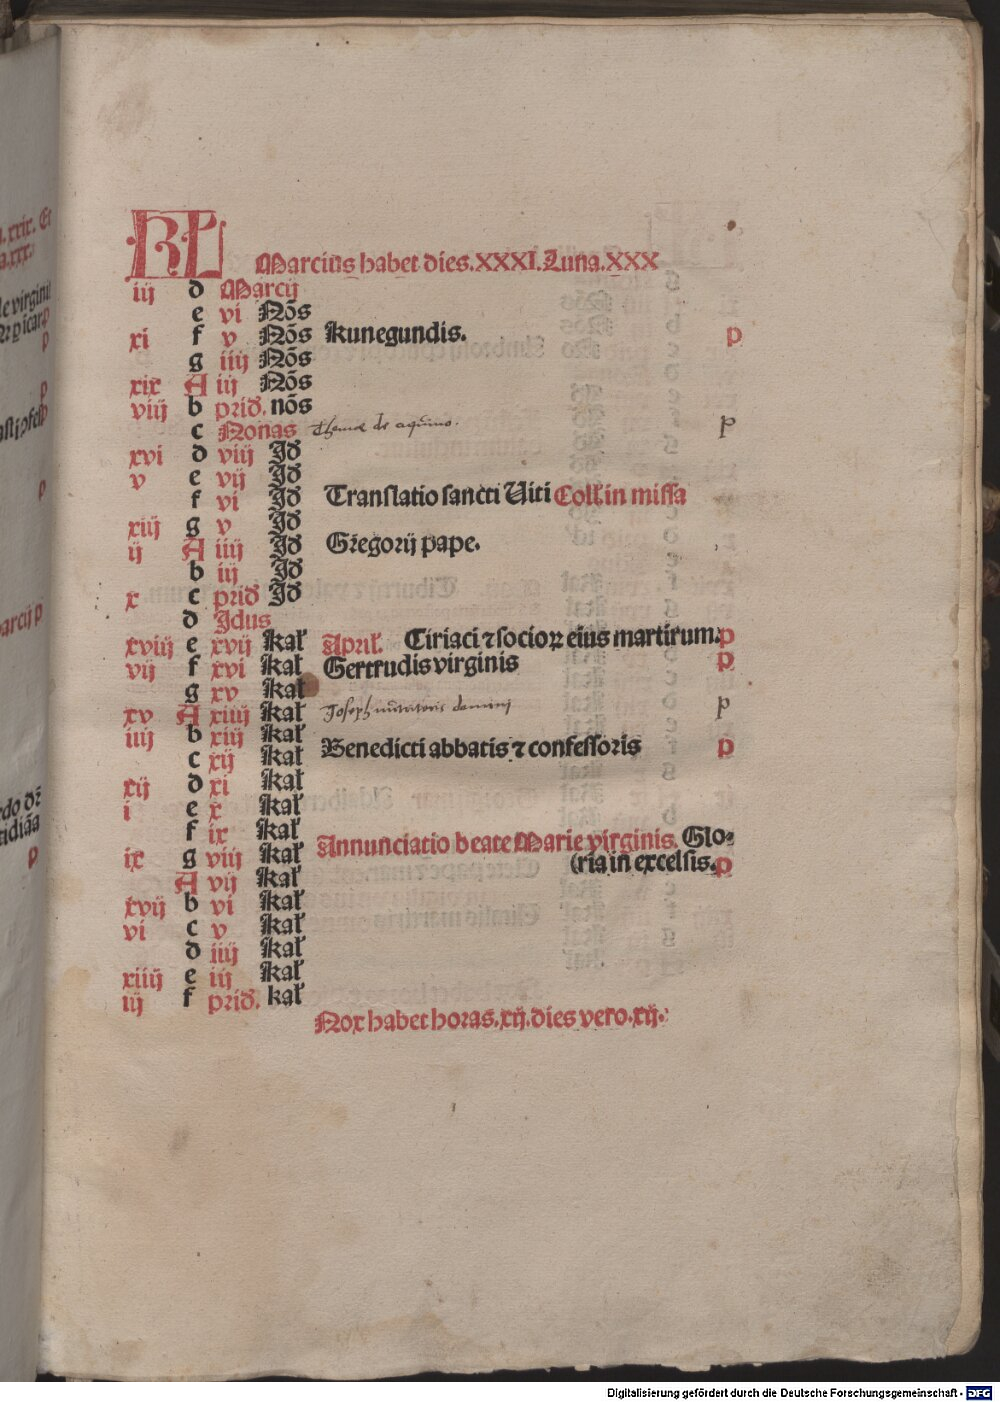 KL Marcius habet dies.XXXI.Luna.XXX
iij d Marcij
e vi Nōs
xi f v Nōs Kunegundis. p
g iiij Nōs
xix A iij Nōs
viij b prid. nōs
c Nonas Thome de aquino. p
xvi d viij Id
v e vij Id
f vi Id Translatio sancti Uiti Coll.in missa
xiij g v Id
ij A iiij Id Gregorij pape.
b iij Id
x c prid Id
d Idus
xviij e xvij kal April. Ciriaci ⁊ socioꝝ eius martirum. p
vij f xvi kal Gertrudis virginis p
g xv kal
xv A xiiij kal Joseph nutritoris domini p
iiij b xiij kal Benedicti abbatis ⁊ confessoris p
c xij kal
xij d xi kal
i e x kal
f ix kal Annunciatio beate Marie virginis. Glo-
ix g viij kal (ria in excelsis. p
A vij kal
xvij b vi kal
vi c v kal
d iiij kal
xiiij e iij kal
iij f prid. kal
Nox habet horas.xij.dies vero.xij.
Digitalisierung gefördert durch die Deutsche Forschungsgemeinschaft - DFG